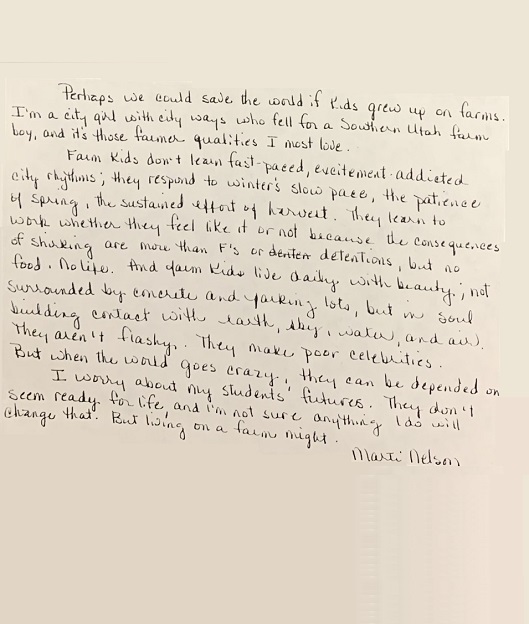 Perhaps we could save the world if kids grew up on farms.
I'm a city girl with city ways who fell for a Southern Utah farm
boy, and it's those farmer qualities I most love.
Farm Kids don't learn fast-paced, excitement-addicted
city rhythms; they respond to winter's slow pace, the patience
of spring, the sustained effort of harvest. They learn to
work whether they feel like it or not because the consequences
of shirking are more than F's or denten detentions, but no
food. No life. And farm kids live daily with beauty; not
surrounded by concrete and parking lots, but in soul
building contact with earth, sky, water, and air.
They aren't flashy. They make poor celebrities.
But when the world goes crazy, they can be depended on
I worry about my students' futures. They don't
seem ready for life, and I'm not sure anything I do will
change that. But living on a farm might.
Marti Nelson